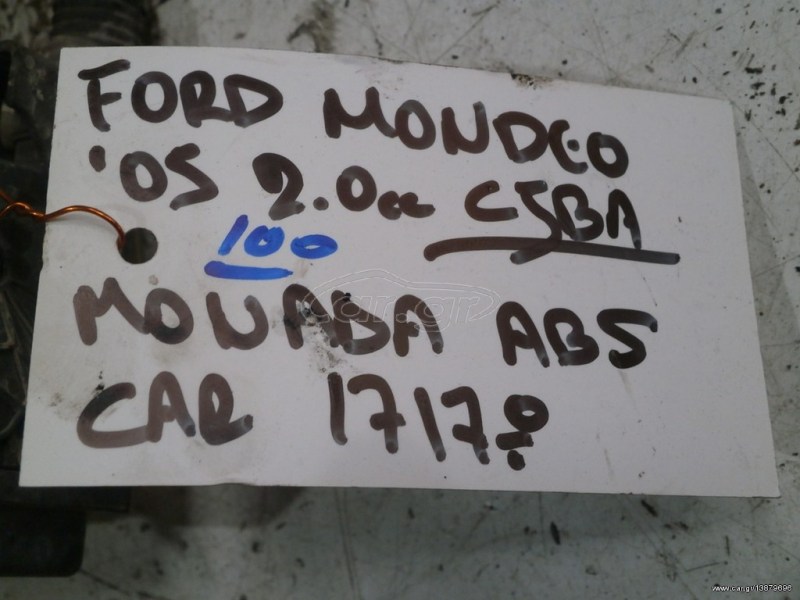 FORD MONDEO
'05 2.0cc CJBA
100
MONADA ABS
CAR 1717
car.gr
www.car.gr/13879696